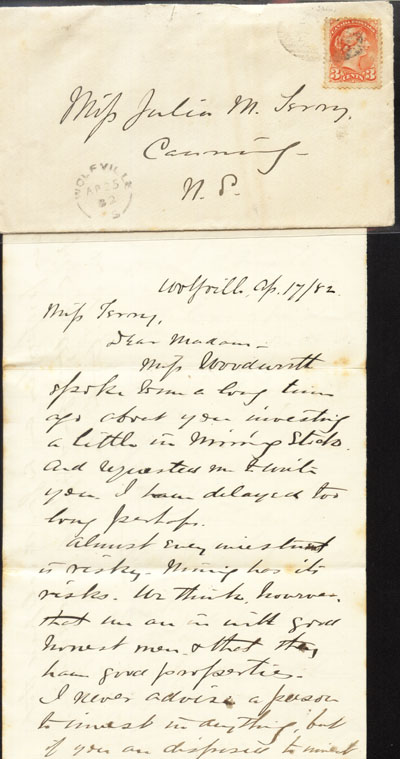 3 CENTS 3
Miss Julia M. Terry,
Canning
N. S.
WOLFVILLE
AP 25
82
Wolfville, Ap. 17/82
Miss Terry,
Dear Madam -
Miss Woodworth
spoke to me a long time
ago about you investing
a little in Mining Stocks.
And requested me to write
you. I have delayed too
long perhaps.
Almost every investment
is risky. Mining has its
risks. We think, however,
that we are in with good
honest men & that they
have good properties.
I never advise a person
to invest in anything, but
if you are disposed to invest